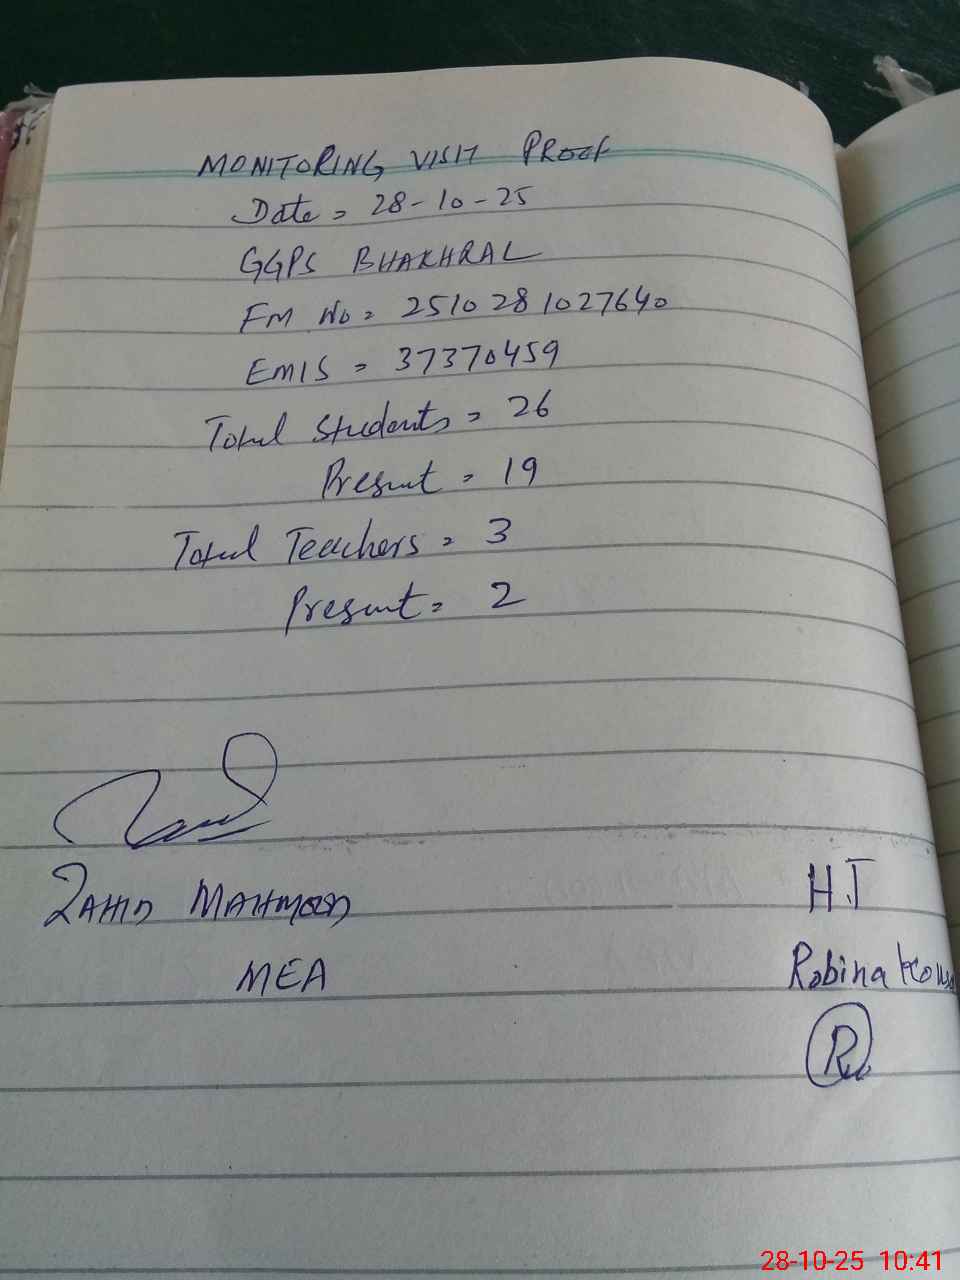 MONITORING VISIT PROOF
Date = 28-10-25
GGPS BHAKHRAL
FM No = 2510281027640
EMIS = 37370459
Total Students = 26
Present = 19
Total Teachers = 3
Present = 2
ZAHID MAHMOOD
MEA
H.T
Robina
28-10-25 10:41